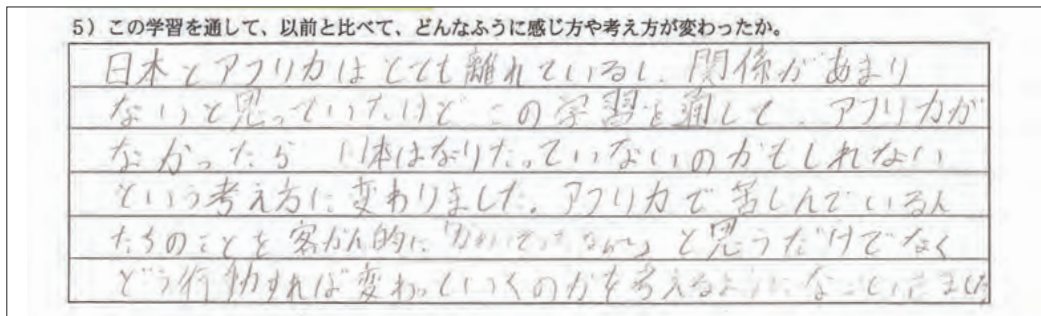 5）この学習を通して、以前と比べて、どんなふうに感じ方や考え方が変わったか。
日本とアフリカはとても離れているし、関係があまり
ないと思っていたけど この学習を通して、アフリカが
なかったら 日本はなりたっていないのかもしれない
という考え方に変わりました。アフリカで苦しんでいる人
たちのことを客かん的に「かわいそうだな〜」と思うだけでなく
どう行動すれば変わっていくのかを考えるようになっていきました